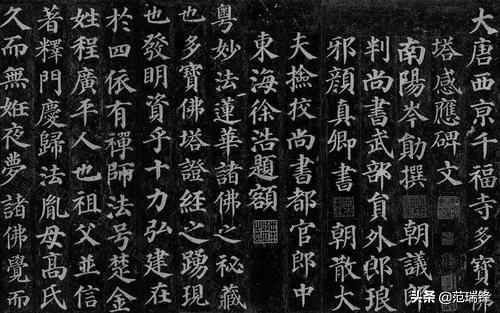 大唐西京千福寺多寶佛
塔感應碑文
南陽岑勛撰 朝議郎
判尚書武部員外郎琅
邪顏真卿書 朝散大
夫撿挍尚書都官郎中
東海徐浩題額
粵妙法蓮華諸佛之秘藏
也多寶佛塔證經之踴現
也發明資乎十力弘建在
於四依有禪師法号楚金
姓程廣平人也祖父並信
著釋門慶歸法胤母高氏
久而無妊夜夢諸佛覺而
头条 @范瑞锋